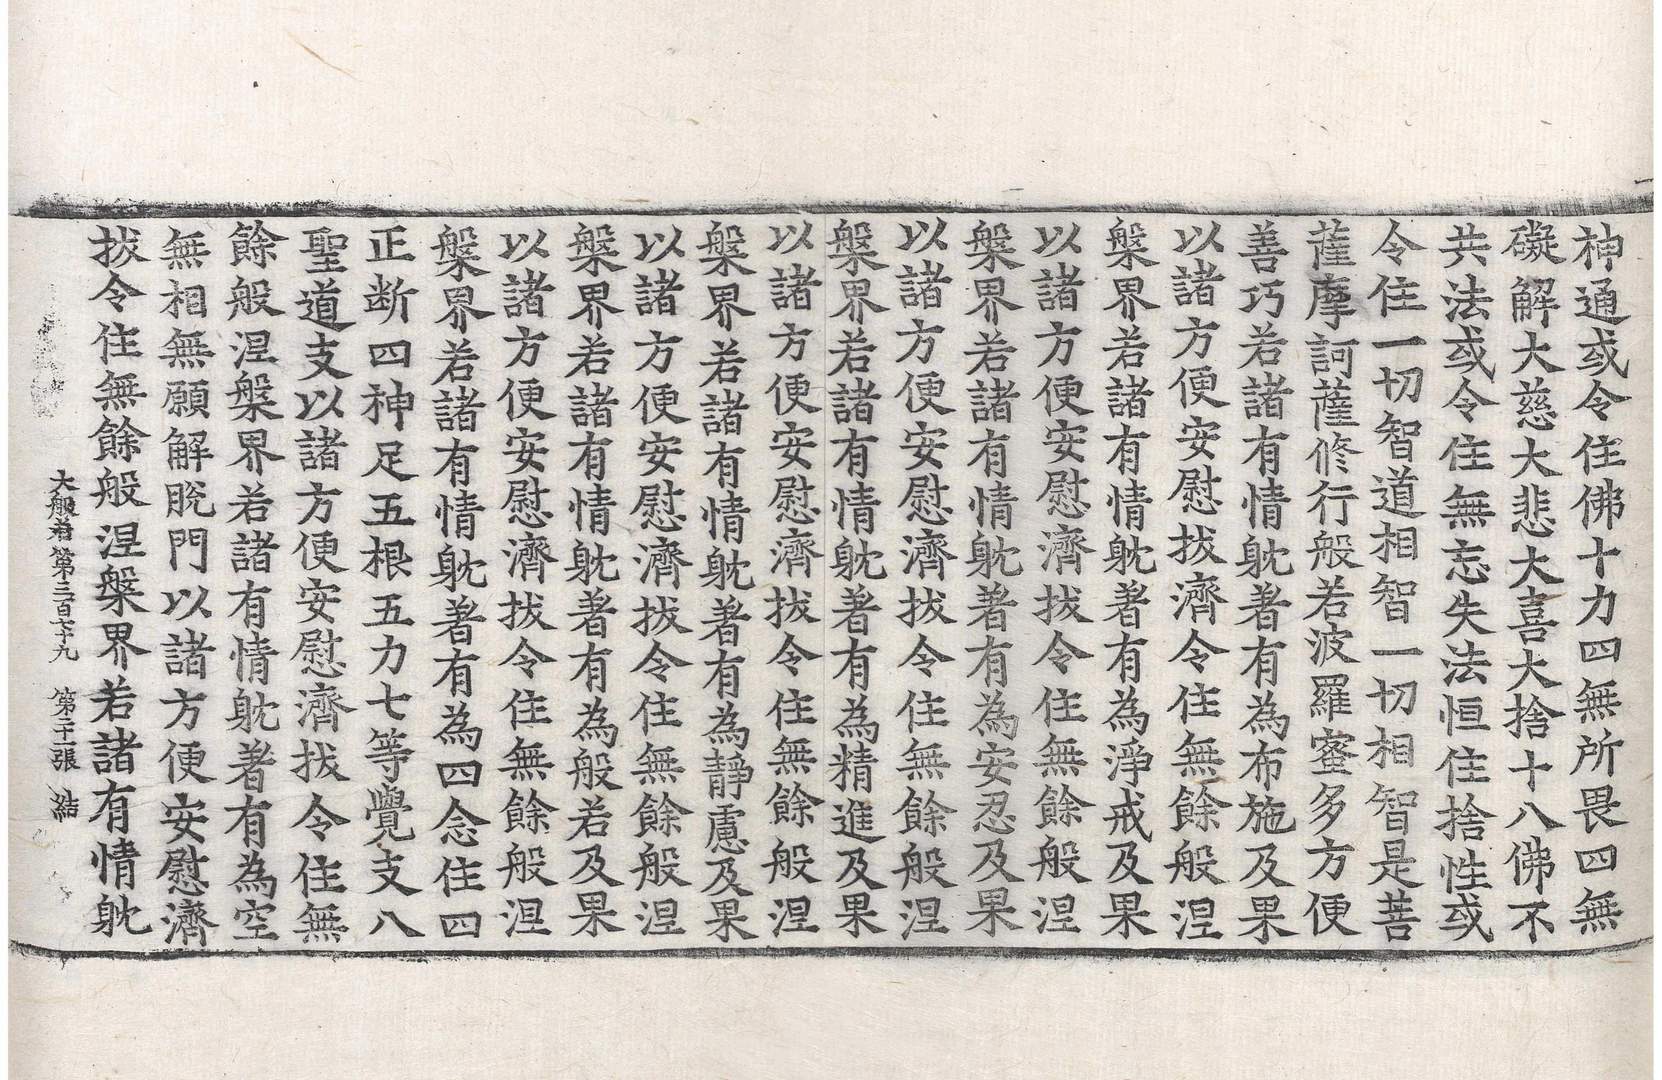 神通或令住佛十力四無所畏四無
礙解大慈大悲大喜大捨十八佛不
共法或令住無忘失法恒住捨性或
令住一切智道相智一切相智是菩
薩摩訶薩修行般若波羅蜜多方便
善巧若諸有情躭著有為布施及果
以諸方便安慰拔濟令住無餘般涅
槃界若諸有情躭著有為淨戒及果
以諸方便安慰濟拔令住無餘般涅
槃界若諸有情躭著有為安忍及果
以諸方便安慰濟拔令住無餘般涅
槃界若諸有情躭著有為精進及果
以諸方便安慰濟拔令住無餘般涅
槃界若諸有情躭著有為靜慮及果
以諸方便安慰濟拔令住無餘般涅
槃界若諸有情躭著有為般若及果
以諸方便安慰濟拔令住無餘般涅
槃界若諸有情躭著有為四念住四
正断四神足五根五力七等覺支八
聖道支以諸方便安慰濟拔令住無
餘般涅槃界若諸有情躭著有為空
無相無願解脫門以諸方便安慰濟
拔令住無餘般涅槃界若諸有情躭
大般若第三百七十九 第二十二張 結